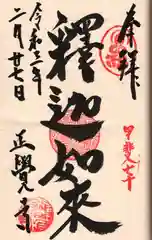 奉拝
甲斐七十
釋迦如來
正覺寺
令和三年
二月廿七日